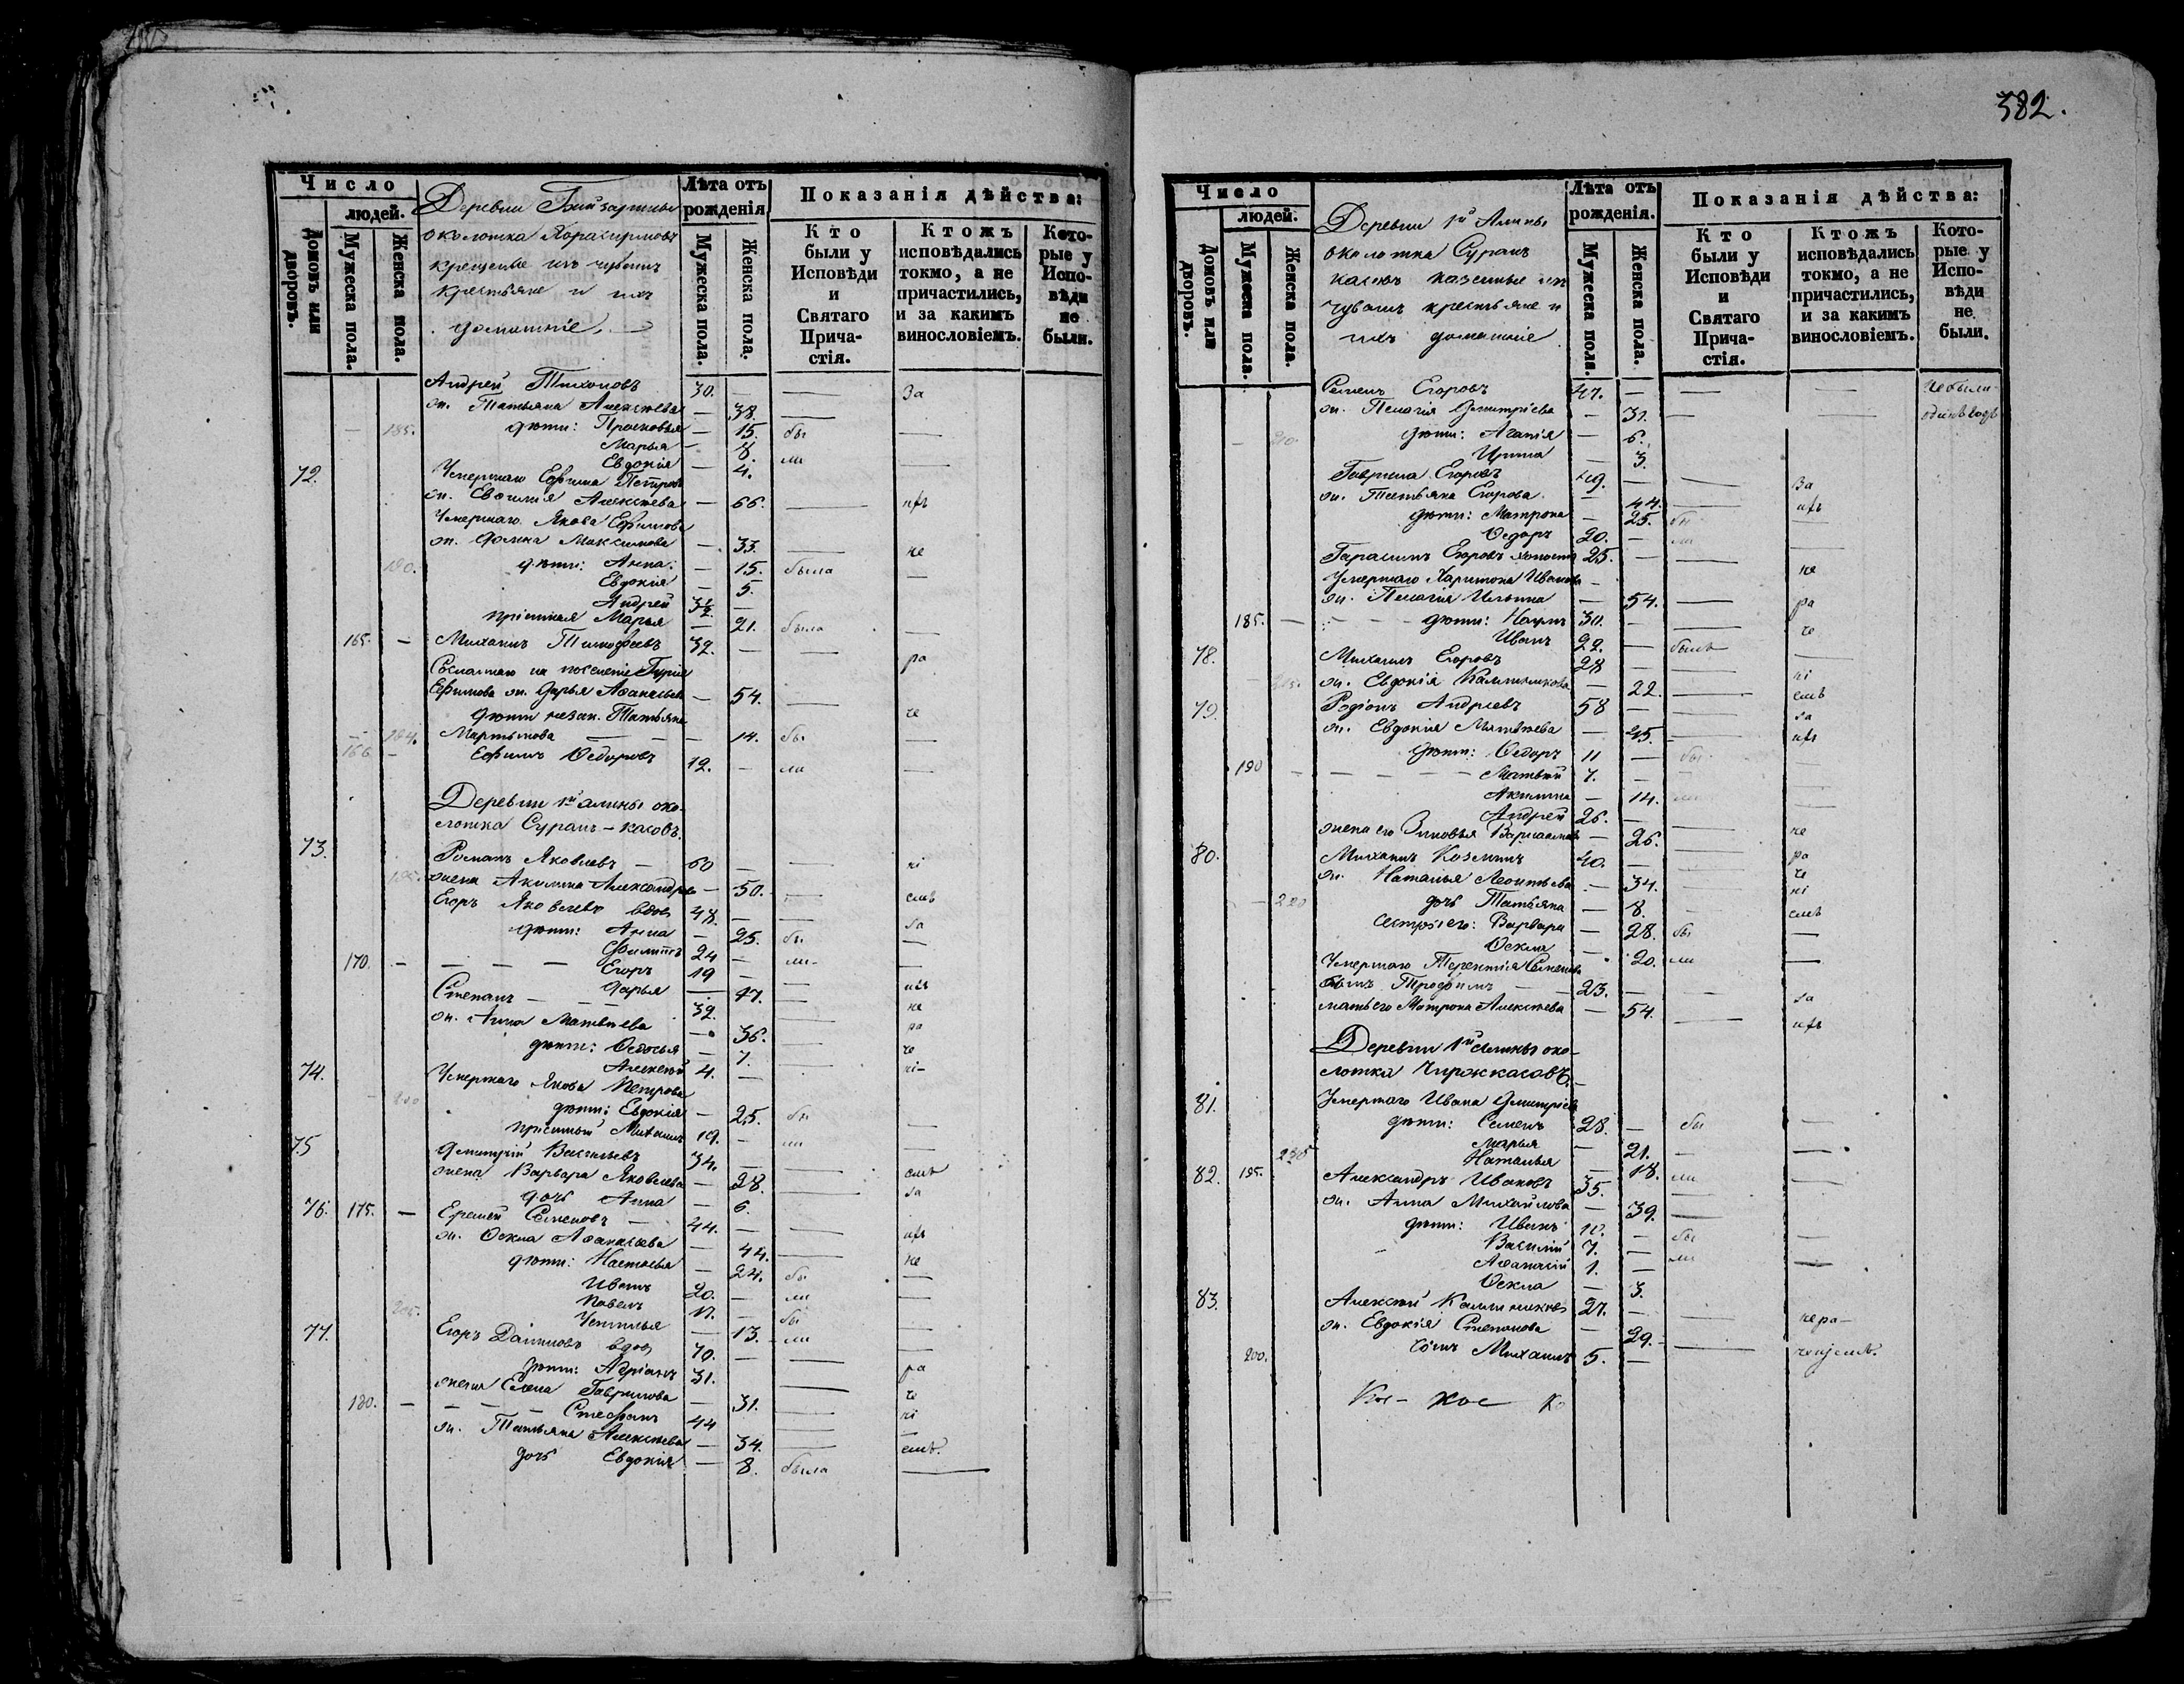 Число
людей.
Домовъ или дворовъ.
Мужеска пола.
Женска пола.
Деревни
околотка
крещеные изъ чувашъ
крестьяне и ихъ
домашніе.
Лѣта отъ рожденія
Мужеска пола.
Женска пола.
Показанія дѣйства:
Кто были у Исповѣди и Святаго Причастія.
Ктожъ исповѣдались токмо, а не причастились, и за какимъ винословіемъ.
Которые у Исповѣди не были.
Андрей Тихоновъ 30. — — За
ж. Татьяна Алексѣева — 38. —
185. дѣти: Прасковья — 15. бы —
Марья — 8. ли —
Евдокія — 4.
72. Умершаго Ефима Петрова
ж. Алексѣева — 66. — нѣ
Умершаго Якова Ефимова
ж. Домна Максимова — 33. — не
190. дѣти: Анна — 15. была —
Евдокія — 5.
Андрей 3½ —
пріемная Марья — 21. была —
165. — Михаилъ Тимофеевъ 32. — — ра
Сосланнаго на поселеніе
Ефимова ж. Дарья Афанасьева — 54. — че
дѣти незак. Татьяна
194. Мартынова — 14. бы —
166 — Ефимъ Ѳедоровъ 12. — ли —
Деревни 1й Алины око-
лотка Сурамъ-касовъ.
73. Романъ Яковлевъ — 60 — — ні
195. жена Акилина Александрова — 50. — емъ
Егоръ Яковлевъ вдов 48. — — за
дѣти: Анна — 25. бы —
Филиппъ 24 — ли —
170. — Егоръ 19 — —
Дарья — 17. — нѣ
Степанъ 32. — не
ж. Анна Матвѣева — 36. — ра
дѣти: Ѳедосья — 7. — че
Алексѣй 4. — — ні-
74. Умершаго Якова Петрова
200 дѣти: Евдокія — 25. бы —
пріемный Михаилъ 19. — ли —
75 Дмитрій Васильевъ 34. — — емъ
жена Варвара Яковлева — 28. — за
дочь Анна — 6.
76. 175. — Еремей Семеновъ — 44. — — нѣ
ж. Ѳекла Афанасьева — 44. — не
дѣти: Настасья — 24. бы —
Иванъ 20. — ли —
Павелъ 17. — бы —
205. Устинья — 13. ли —
77. Егоръ Даниловъ вдов 70. — — ра
дѣти: Адріанъ 31. —
жена Елена Гаврилова — 31. — че
180. — Стефанъ 44 — ні
ж. Татьяна Алексѣева — 34. — емъ.
дочь Евдокія — 8. была —
382.
Число
людей.
Домовъ или дворовъ.
Мужеска пола.
Женска пола.
Деревни 1й Алины
околотка Сурамъ
касовъ казенные изъ
чувашъ крестьяне и
ихъ домашніе
Лѣта отъ рожденія.
Мужеска пола.
Женска пола.
Показанія дѣйства:
Кто были у Исповѣди и Святаго Причастія.
Ктожъ исповѣдались токмо, а не причастились, и за какимъ винословіемъ.
Которые у Исповѣди не были.
Семенъ Егоровъ 47. — — — не были
ж. Пелагія Дмитріева — 31. — — одинъ годъ
210 дѣти: Агапія — 6.
Ирина — 3.
Гаврила Егоровъ 49. — — За
ж. Татьяна Егорова — 44. — нѣ
дѣти: Матрона — 25. бы —
Ѳедоръ 20. — ли —
Герасимъ Егоровъ холостъ 25. — не
Умершаго Харитона Иванова —
ж. Пелагія Ильина — 54. — ра
185. — дѣти: Наумъ 30. — — че
Иванъ 22. — былъ —
78. Михаилъ Егоровъ 28 — — ні
215. ж. Евдокія Калинникова — 22. — емъ
79. Родіонъ Андреевъ 58 — — за
ж. Евдокія Матвѣева — 45. — нѣ
дѣти: Ѳедоръ 11 — бы —
190 — Матвѣй 7. —
Акилина — 14. ли —
Андрей 26. — —
жена его Зиновья — 26. — не
80. Михаилъ Козминъ 40. — — ра
ж. Наталья Леонтьева — 34. — че
220 дочь Татьяна — 8. — ні
сестры его: Варвара — 28. бы —
Ѳекла — 20. ли —
Умершаго Терентія Семенова
сынъ Трофимъ 23. — — за
мать его Матрона Алексѣева — 54. — нѣ
Деревни 1й Алины око-
лотка Чирожкасовъ.
81. Умершаго Ивана Дмитріева
дѣти: Семенъ 28. — бы —
Марья — 21. — —
225 Наталья — 18. ли —
82. 195. Александръ Ивановъ 35. — —
ж. Анна Михайлова — 39. —
дѣти: Иванъ — бы —
Василій 7. — ли —
Афанасій 1. —
Ѳекла — 3.
83. Алексѣй Калинниковъ 27. — — нера-
ж. Евдокія Степанова — 29. — ченіемъ.
200. сынъ Михаилъ 5. —